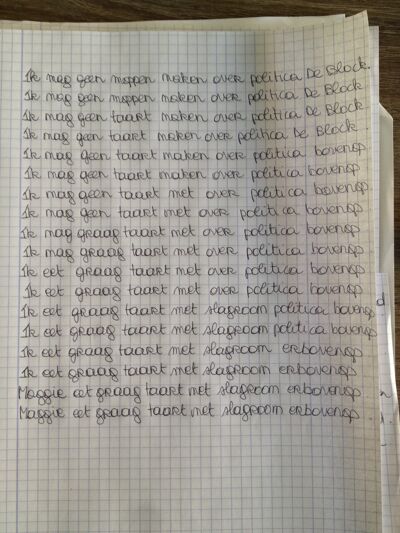 Ik mag geen moppen maken over politica De Block.
Ik mag geen moppen maken over politica De Block
Ik mag geen taart maken over politica De Block
Ik mag geen taart maken over politica De Block
Ik mag geen taart maken over politica bovenop
Ik mag geen taart maken over politica bovenop
Ik mag geen taart met over politica bovenop
Ik mag geen taart met over politica bovenop
Ik mag graag taart met over politica bovenop
Ik mag graag taart met over politica bovenop
Ik eet graag taart met over politica bovenop
Ik eet graag taart met over politica bovenop
Ik eet graag taart met slagroom politica bovenop
Ik eet graag taart met slagroom politica bovenop
Ik eet graag taart met slagroom erbovenop
Ik eet graag taart met slagroom erbovenop
Maggie eet graag taart met slagroom erbovenop
Maggie eet graag taart met slagroom erbovenop